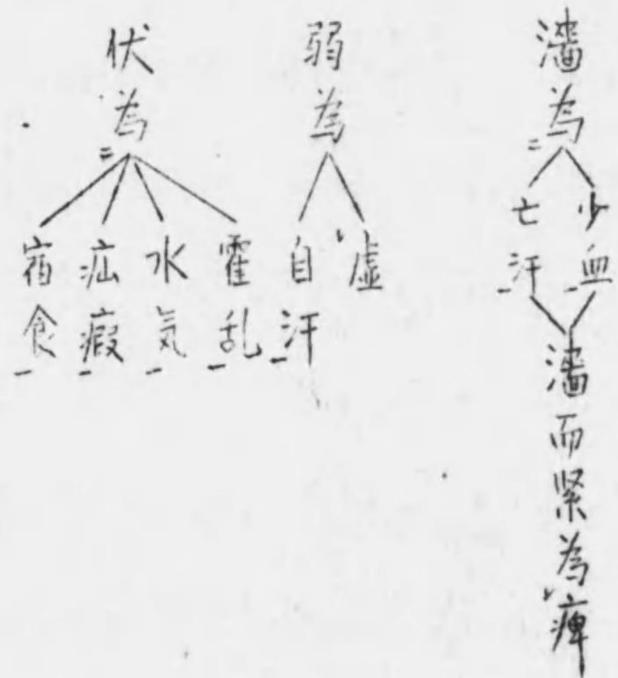 濇為
少血
亡汗
濇而紧為痺
弱為
虚
自汗
伏為
霍乱
水気
疝瘕
宿食